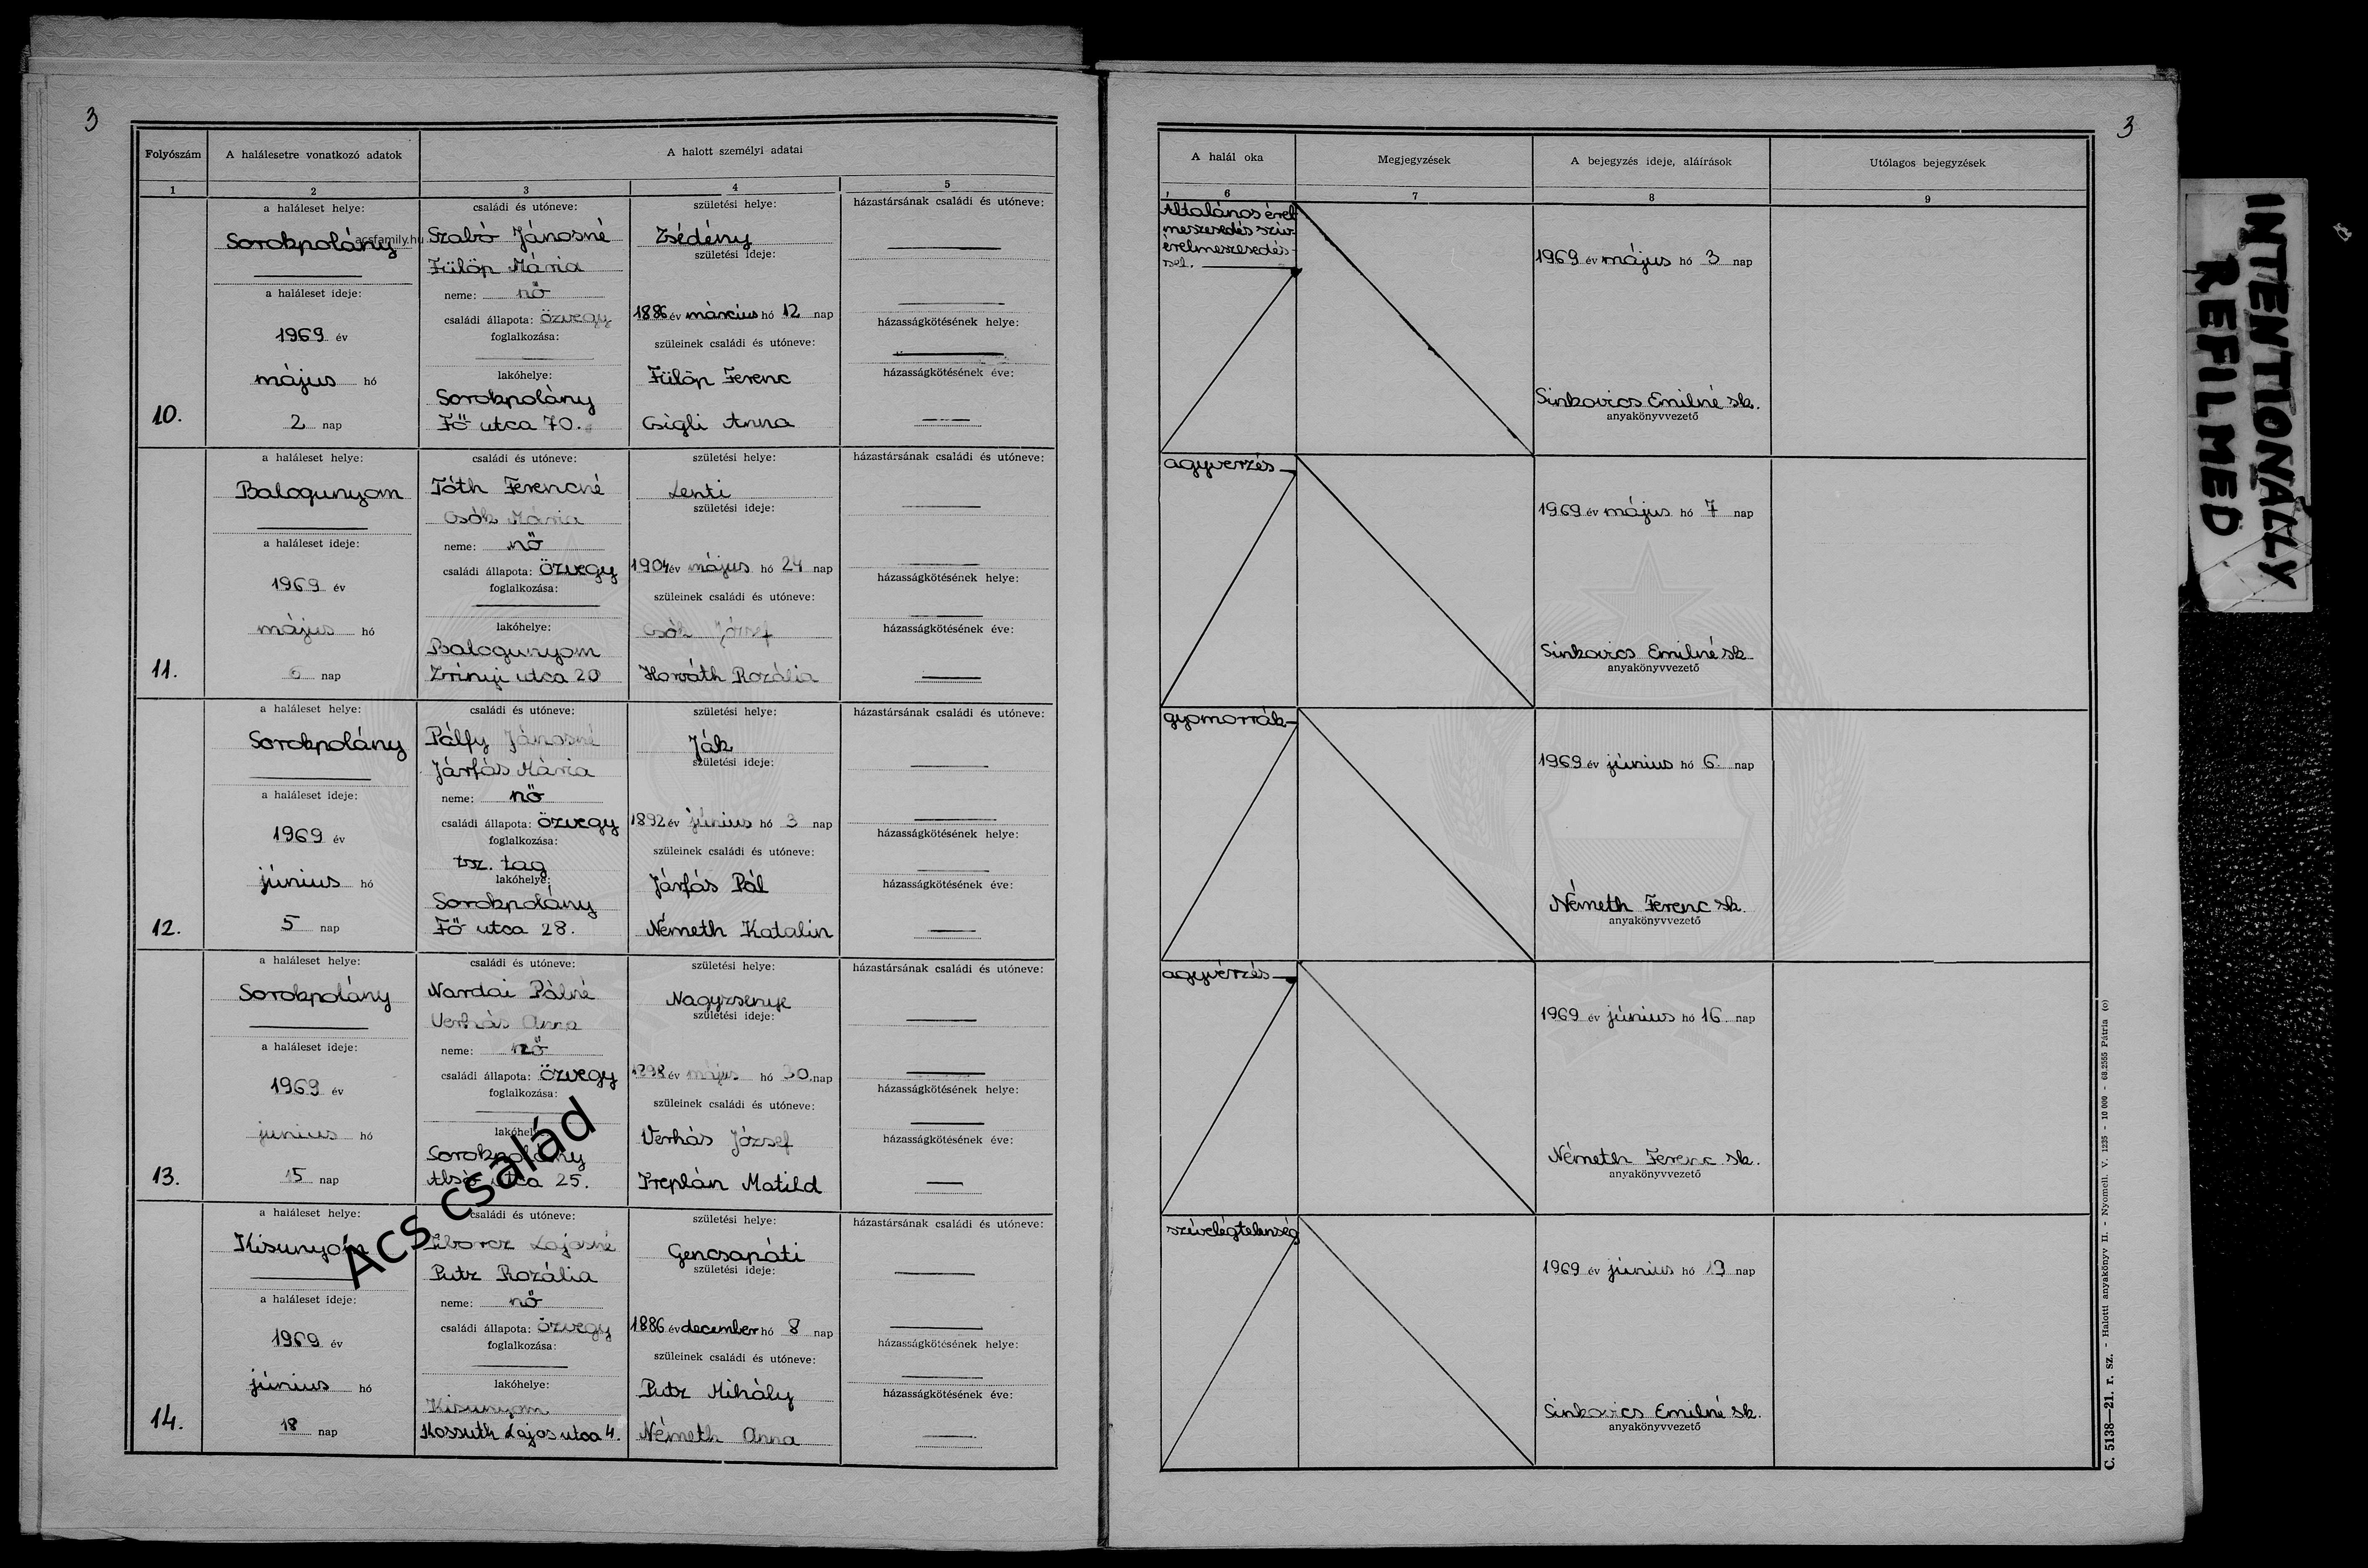 3
3
Folyószám
A halálesetre vonatkozó adatok
A halott személyi adatai
A halál oka
Megjegyzések
A bejegyzés ideje, aláírások
Utólagos bejegyzések
1
2
3
4
5
6
7
8
9
10.
a haláleset helye:
Sorokpolány
acsfamily.hu
a haláleset ideje:
1969 év
május hó
2 nap
családi és utóneve:
Szabó Jánosné
Fülöp Mária
neme: nő
családi állapota: özvegy
foglalkozása:
lakóhelye:
Sorokpolány
Fő utca 70.
születési helye:
Zsédény
születési ideje:
1886 év március hó 12 nap
szüleinek családi és utóneve:
Fülöp Ferenc
Csigli Anna
házastársának családi és utóneve:
házasságkötésének helye:
házasságkötésének éve:
Általános érel
meszesedés szív-
érelmeszesedés-
sel.
1969 év május hó 3 nap
Sinkovics Emilné sk.
anyakönyvvezető
11.
a haláleset helye:
Balogunyom
a haláleset ideje:
1969 év
május hó
6 nap
családi és utóneve:
Tóth Ferencné
Csók Mária
neme: nő
családi állapota: özvegy
foglalkozása:
lakóhelye:
Balogunyom
Zrínyi utca 20
születési helye:
Lenti
születési ideje:
1904 év május hó 24 nap
szüleinek családi és utóneve:
Csók József
Horváth Rozália
házastársának családi és utóneve:
házasságkötésének helye:
házasságkötésének éve:
agyvérzés
1969 év május hó 7 nap
Sinkovics Emilné sk
anyakönyvvezető
12.
a haláleset helye:
Sorokpolány
a haláleset ideje:
1969 év
június hó
5 nap
családi és utóneve:
Pálfy Jánosné
Járfás Mária
neme: nő
családi állapota: özvegy
foglalkozása:
tsz. tag
lakóhelye:
Sorokpolány
Fő utca 28.
születési helye:
Ják
születési ideje:
1892 év június hó 3 nap
szüleinek családi és utóneve:
Járfás Pál
Németh Katalin
házastársának családi és utóneve:
házasságkötésének helye:
házasságkötésének éve:
gyomorrák
1969 év június hó 6 nap
Németh Ferenc sk.
anyakönyvvezető
13.
a haláleset helye:
Sorokpolány
a haláleset ideje:
1969 év
június hó
15 nap
családi és utóneve:
Nardai Pálné
Verhás Anna
neme: nő
családi állapota: özvegy
foglalkozása:
lakóhelye:
Sorokpolány
Alsó utca 25.
születési helye:
Nagyzsenye
születési ideje:
1898 év május hó 30 nap
szüleinek családi és utóneve:
Verhás József
Treplán Matild
házastársának családi és utóneve:
házasságkötésének helye:
házasságkötésének éve:
agyvérzés
1969 év június hó 16 nap
Németh Ferenc sk.
anyakönyvvezető
14.
a haláleset helye:
Kisunyom
a haláleset ideje:
1969 év
június hó
18 nap
családi és utóneve:
Tiborcz Lajosné
Putz Rozália
neme: nő
családi állapota: özvegy
foglalkozása:
lakóhelye:
Kisunyom
Kossuth Lajos utca 4.
születési helye:
Gencsapáti
születési ideje:
1886 év december hó 8 nap
szüleinek családi és utóneve:
Putz Mihály
Németh Anna
házastársának családi és utóneve:
házasságkötésének helye:
házasságkötésének éve:
szívelégtelenség
1969 év június hó 19 nap
Sinkovics Emilné sk.
anyakönyvvezető
Acs család
C. 5138—21. r. sz. - Halotti anyakönyv II. - Nyomell. V. 1235 - 10 000 - 68.2555 Pátria (o)
INTENTIONALLY
REFILMED